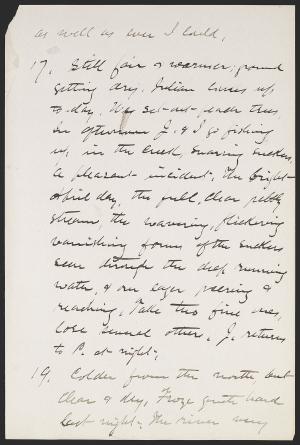 as well as ever I could.
17. Still fair & warmer; ground
getting dry. Julian comes up
to-day. We set out peach trees.
In afternoon J. & I go fishing
up in the creek, snaring suckers,
a pleasant incident; the bright
April day, the full, clear pebbly
stream, the wavering, flickering
vanishing forms of the suckers
seen through the deep running
water, & our eager peering &
reaching. Take two fine ones,
lose several others. J. returns
to P. at night.
19. Colder from the north, but
clear & dry. Froze quite hard
last night. The river very